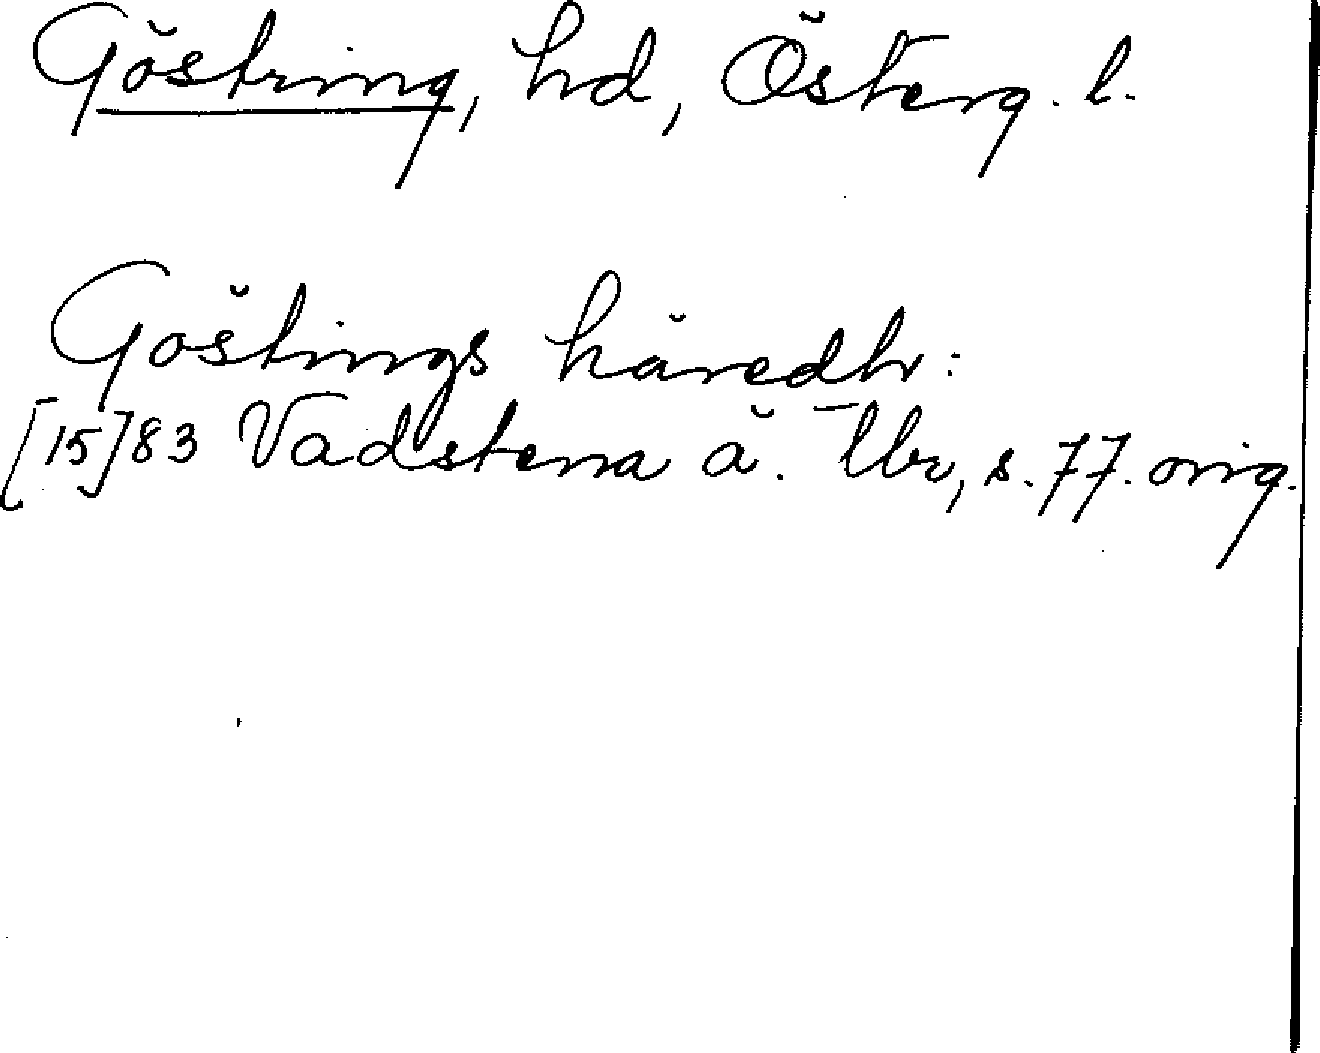 Göstring, hd, Österg. l.
Göstings häredhr:
[15]83 Vadstena ä. Tbr, s. 77. orig.